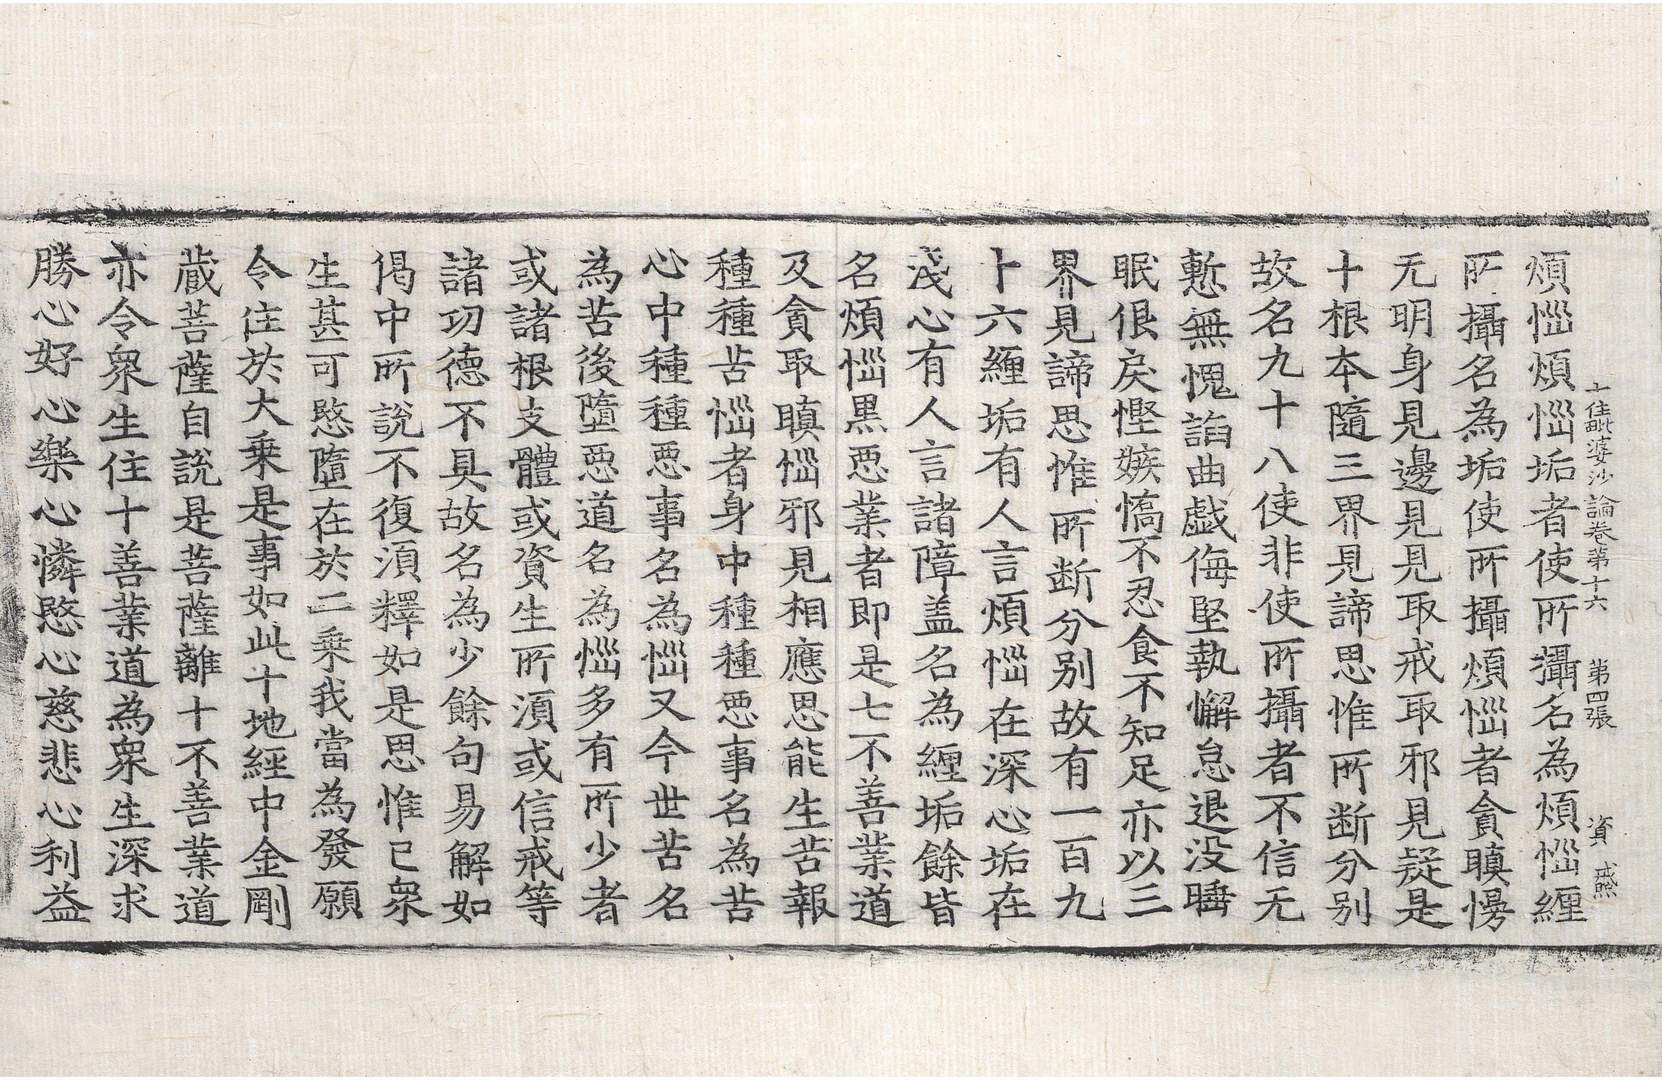 十住毗婆沙論卷第十六 第四張 資
煩惱煩惱垢者使所攝名為煩惱纒
所攝名為垢使所攝煩惱者貪瞋慢
无明身見邊見見取戒取邪見疑是
十根本隨三界見諦思惟所断分别
故名九十八使非使所攝者不信无
慙無愧諂曲戯侮堅執懈怠退没睡
眠佷戾慳嫉憍不忍食不知足亦以三
界見諦思惟所断分别故有一百九
十六纏垢有人言煩惱在深心垢在
淺心有人言諸障盖名為纏垢餘皆
名煩惱黒惡業者即是七不善業道
及貪取瞋惱邪見相應思能生苦報
種種苦惱者身中種種惡事名為苦
心中種種惡事名為惱又今世苦名
為苦後墮惡道名為惱多有所少者
或諸根支體或資生所湏或信戒等
諸功德不具故名為少餘句易解如
偈中所說不復湏釋如是思惟已衆
生甚可愍墮在於二乗我當為發願
令住於大乗是事如此十地經中金剛
蔵菩薩自說是菩薩離十不善業道
亦令衆生住十善業道為衆生深求
勝心好心樂心憐愍心慈悲心利益